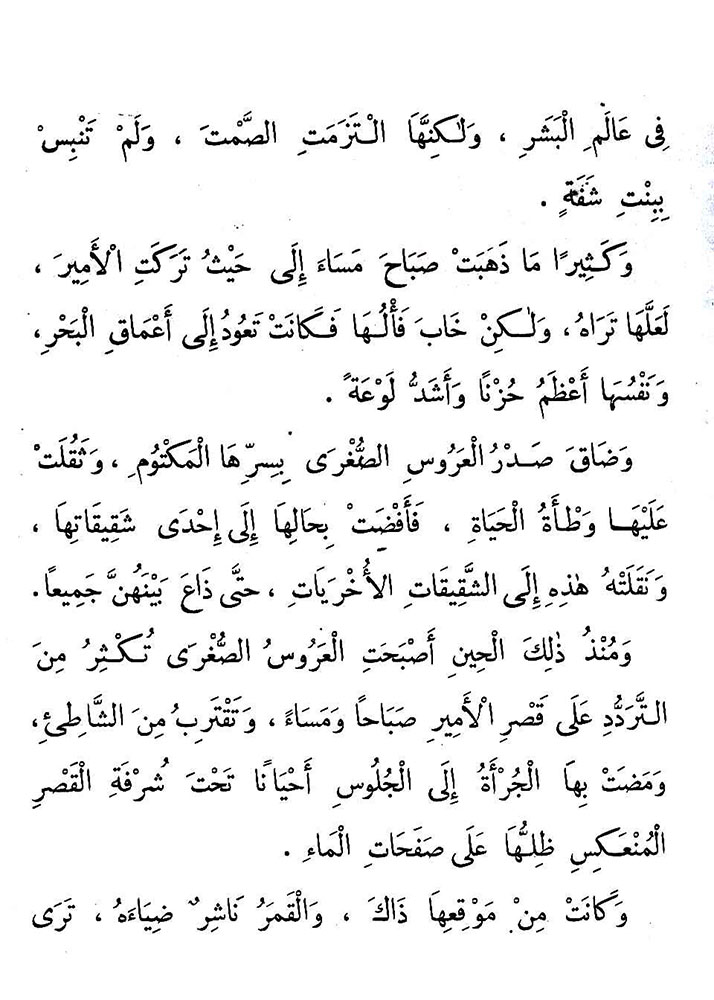 فِى عَالَمِ الْبَشَرِ ، وَلٰكِنَّهَا الْتَزَمَتِ الصَّمْتَ ، وَلَمْ تَنْبِسْ
بِبِنْتِ شَفَةٍ .
وَكَثِيرًا مَا ذَهَبَتْ صَبَاحَ مَسَاءَ إِلَى حَيْثُ تَرَكَتِ الْأَمِيرَ ،
لَعَلَّهَا تَرَاهُ، وَلٰكِنْ خَابَ فَأْلُهَا فَكَانَتْ تَعُودُ إِلَى أَعْمَاقِ الْبَحْرِ،
وَنَفْسُهَا أَعْظَمُ حُزْنًا وَأَشَدُّ لَوْعَةً .
وَضَاقَ صَدْرُ الْعَرُوسِ الصُّغْرَى بِسِرِّهَا الْمَكْتُومِ ، وَثَقُلَتْ
عَلَيْهَا وَطْأَةُ الْحَيَاةِ ، فَأَفْضَتْ بِحَالِهَا إِلَى إِحْدَى شَقِيقَاتِهَا ،
وَنَقَلَتْهُ هٰذِهِ إِلَى الشَّقِيقَاتِ الْأُخْرَيَاتِ ، حتَّى ذَاعَ بَيْنَهُنَّ جَمِيعًا.
وَمُنْذُ ذٰلِكَ الْحِينِ أَصْبَحَتِ الْعَرُوسُ الصُّغْرَى تُكْثِرُ مِنَ
التَّرَدُّدِ عَلَى قَصْرِ الْأَمِيرِ صَبَاحاً وَمَسَاءً ، وَتَقْتَرِبُ مِنَ الشَّاطِئِ،
وَمَضَتْ بِهَا الْجُرْأَةُ إِلَى الْجُلُوسِ أَحْيَانًا تَحْتَ شُرْفَةِ الْقَصْرِ
الْمُنْعَكِسِ ظِلُّهَا عَلَى صَفَحَاتِ الْمَاءِ .
وَكَانَتْ مِنْ مَوْقِعِهَا ذَاكَ ، وَالْقَمَرُ نَاشِرٌ ضِيَاءَهُ ، تَرَى